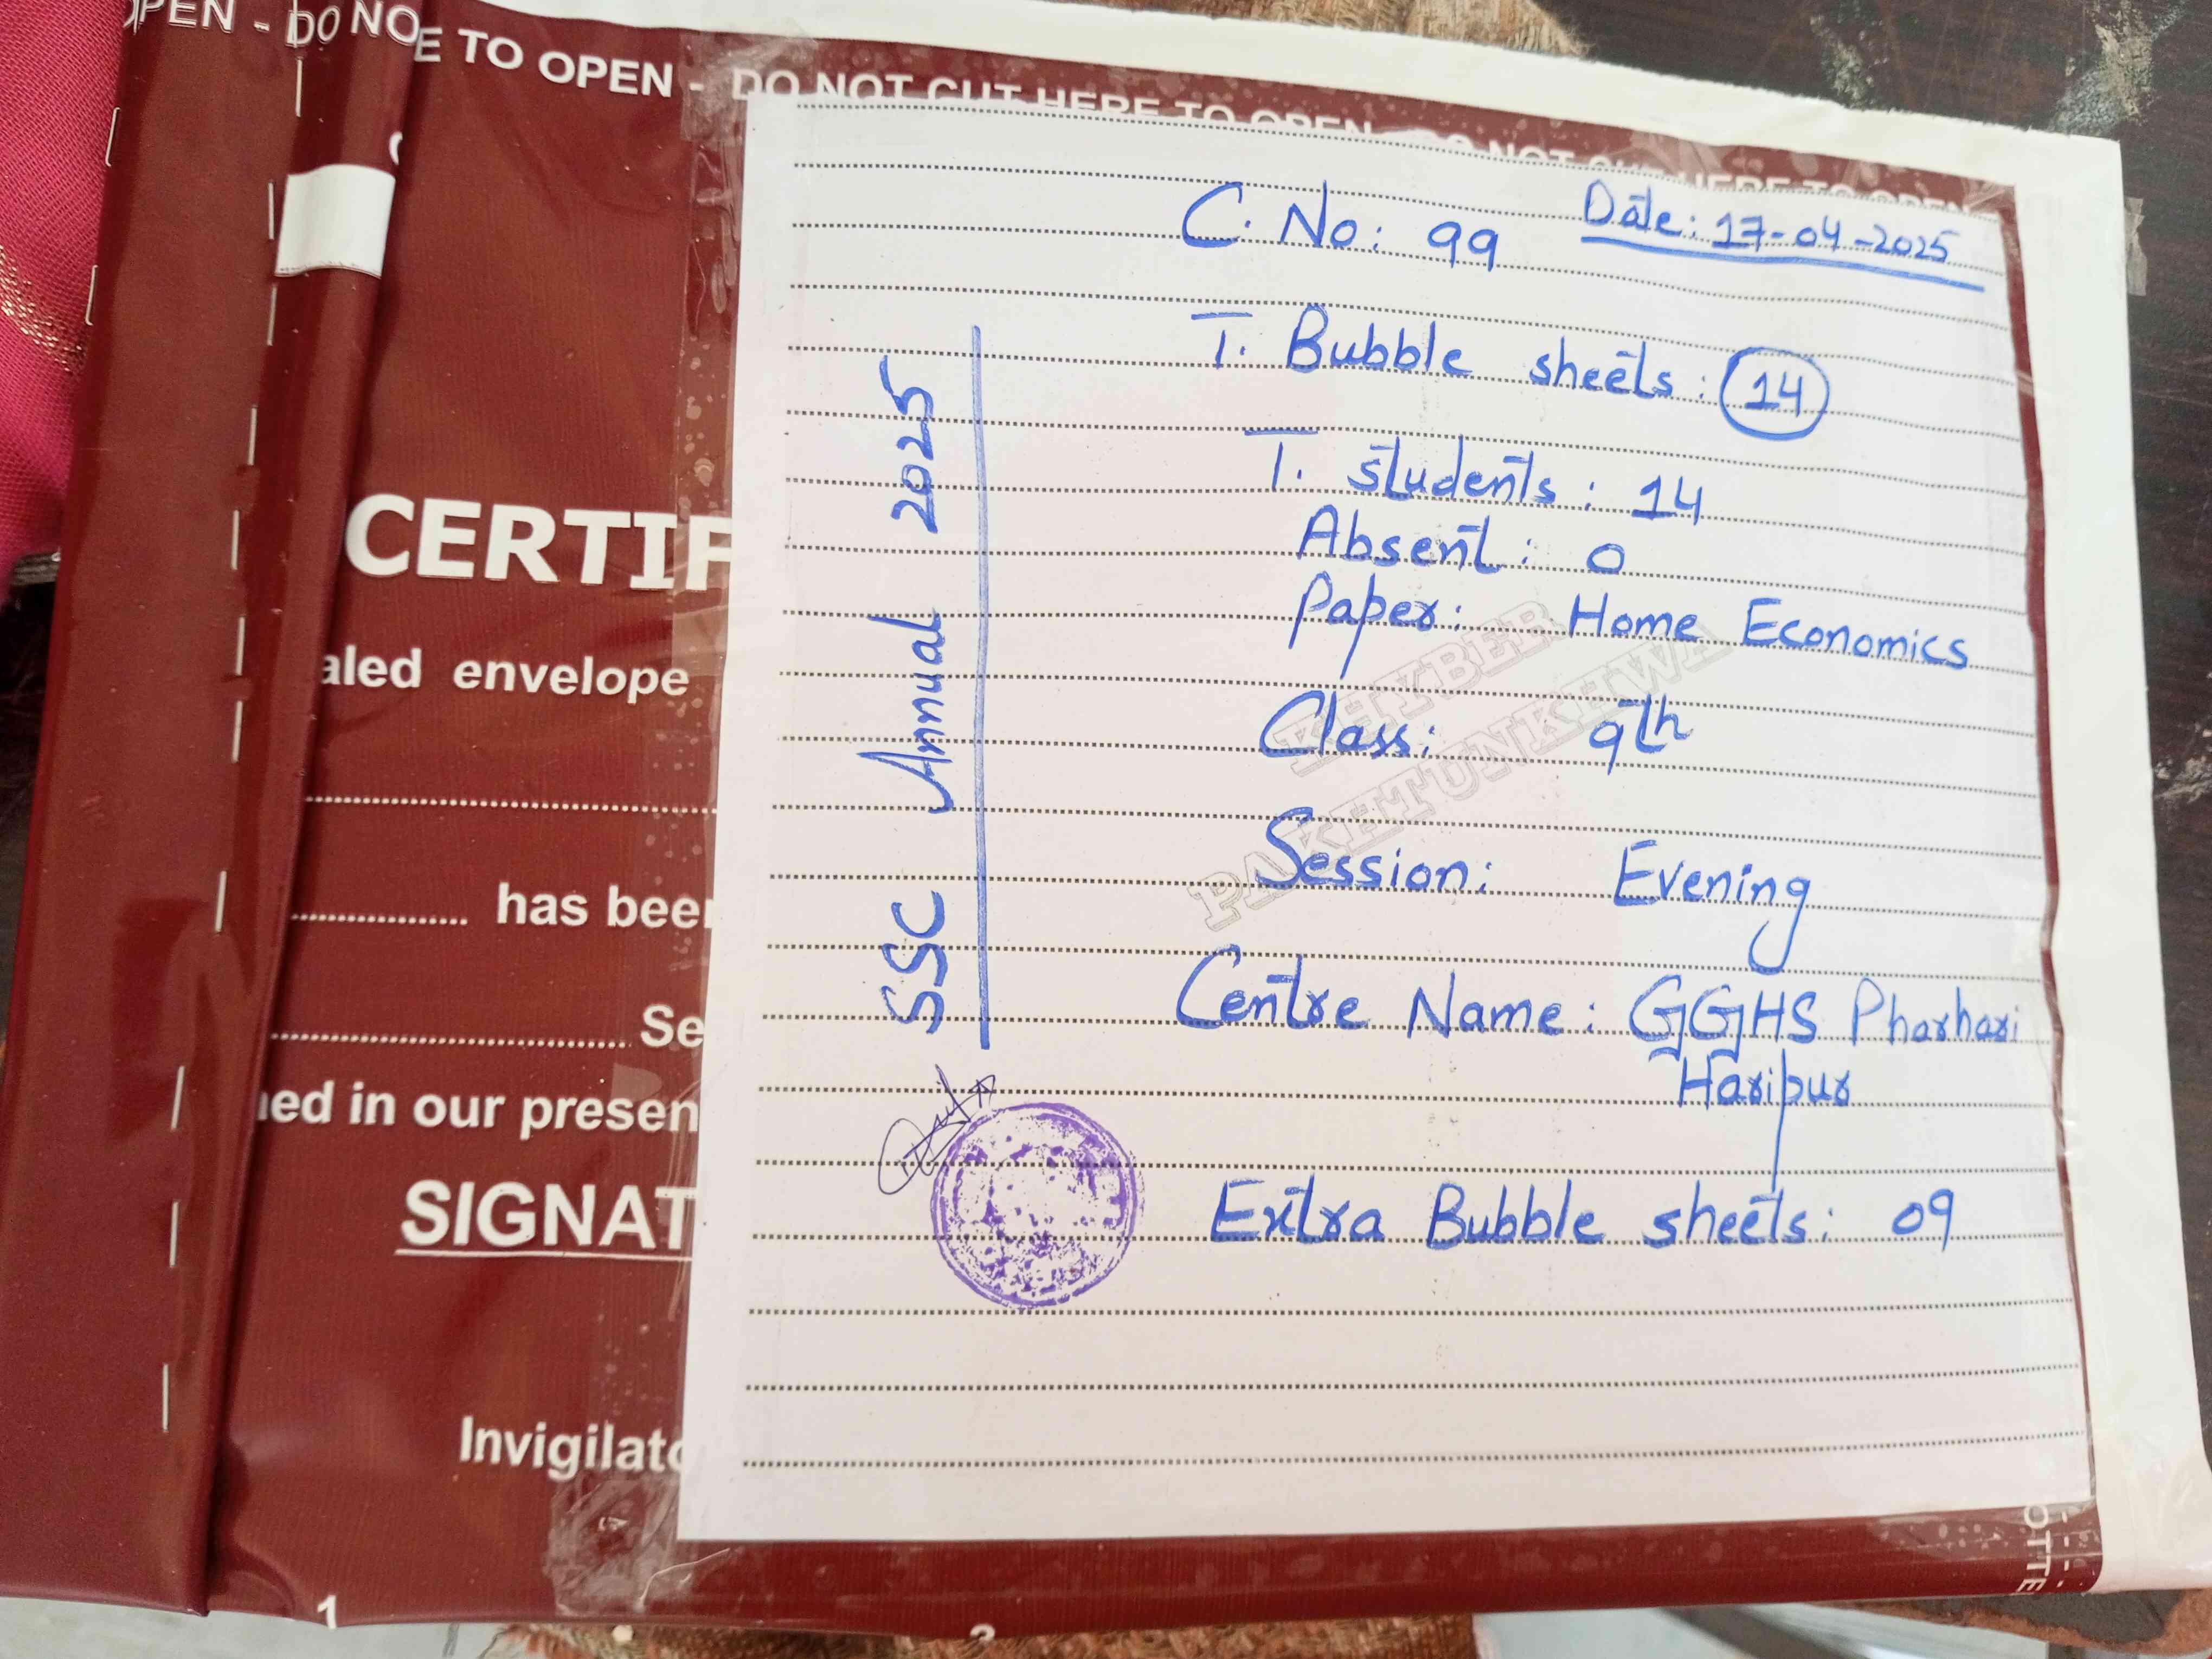 OPEN - DO NO
E TO OPEN - DO NOT CUT HERE TO OPEN - DO NOT CUT HERE TO OPEN
C. No: 99 Date: 17-04-2025
T. Bubble sheets: 14
T. students: 14
Absent: 0
Paper: Home Economics
Class: 9th
Session: Evening
Centre Name: GGHS Pharhari
Haripur
Extra Bubble sheets: 09
SSC Annual 2025
KHYBER
PAKHTUNKHWA
CERTIF
aled envelope
has bee
Se
ned in our presen
SIGNAT
Invigilato
1
2
OTTE